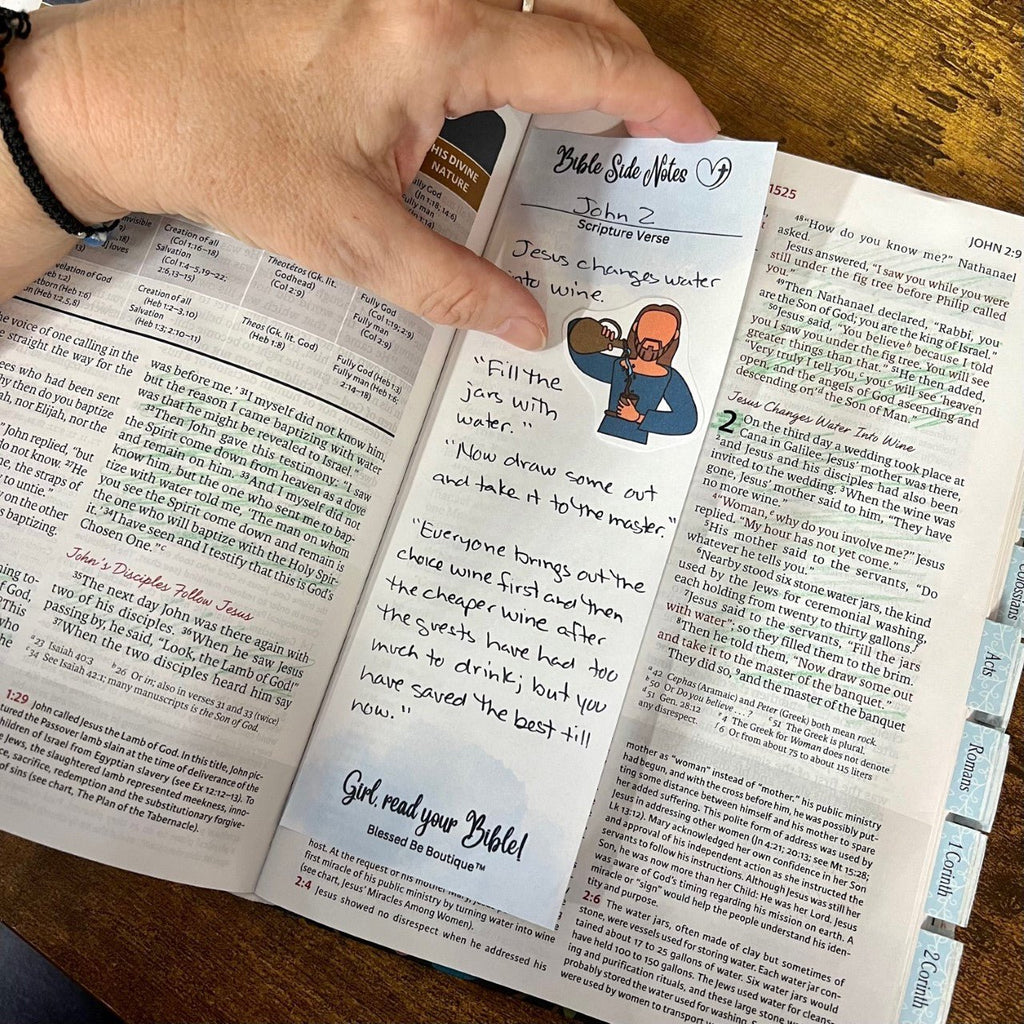 HIS DIVINE
NATURE
Fully God
(Jn 1:18; 14:6)
Fully man
invisible
Creation of all
(Col 1:16–18)
Salvation
(Col 1:4–5,19–22;
2:6,13–15)
Theotētos (Gk. lit.
Godhead)
(Col 2:9)
Fully God
(Col 1:19; 2:9)
Fully man
(Col 2:9)
velation of God
(Heb 1:2)
(Heb 1:6)
(Heb 1:2,5,8)
Creation of all
(Heb 1:2–3,10)
Salvation
(Heb 1:3; 2:10–11)
Theos (Gk. lit. God)
(Heb 1:8)
Fully God (Heb 1:3)
Fully man (Heb 1:6;
2:14–18)
he voice of one calling in the
e straight the way for the
ees who had been sent
hy then do you baptize
ah, nor Elijah, nor the
" John replied, "but
do not know. 27He
me, the straps of
y to untie."
y on the other
s baptizing.
ming to-
of God,
"This
who
he
was before me.' 31I myself did not know him,
but the reason I came baptizing with water
was that he might be revealed to Israel."
32Then John gave this testimony: "I saw
the Spirit come down from heaven as a dove
and remain on him. 33And I myself did not
know him, but the one who sent me to bap-
tize with water told me, 'The man on whom
you see the Spirit come down and remain is
the one who will baptize with the Holy Spir-
it.' 34I have seen and I testify that this is God's
Chosen One."c
John's Disciples Follow Jesus
35The next day John was there again with
two of his disciples. 36When he saw Jesus
passing by, he said, "Look, the Lamb of God!"
37When the two disciples heard him say
a23 Isaiah 40:3 b26 Or in; also in verses 31 and 33 (twice)
c34 See Isaiah 42:1; many manuscripts is the Son of God.
1:29 John called Jesus the Lamb of God. In this title, John pic-
tured the Passover lamb slain at the time of deliverance of the
children of Israel from Egyptian slavery (see Ex 12:12–13). To
e Jews, the slaughtered lamb represented meekness, inno-
ce, sacrifice, redemption and the substitutionary forgive-
of sins (see chart, The Plan of the Tabernacle).
Bible Side Notes
John 2
Scripture Verse
Jesus changes water
into wine.
"Fill the
jars with
water."
"Now draw some out
and take it to the master."
"Everyone brings out the
choice wine first and then
the cheaper wine after
the guests have had too
much to drink; but you
have saved the best till
now."
Girl, read your Bible!
Blessed Be Boutique™
host. At the request of his mother Mary, Jesus
first miracle of his public ministry by turning water into wine
(see chart, Jesus' Miracles Among Women).
2:4 Jesus showed no disrespect when he addressed his
1525
JOHN 2:9
48"How do you know me?" Nathanael
asked.
Jesus answered, "I saw you while you were
still under the fig tree before Philip called
you."
49Then Nathanael declared, "Rabbi, you
are the Son of God; you are the king of Israel."
50Jesus said, "You believeb because I told
you I saw you under the fig tree. You will see
greater things than that." 51He then added,
"Very truly I tell you,c youc will see 'heaven
open, and the angels of God ascending and
descending on'd the Son of Man."
Jesus Changes Water Into Wine
2 On the third day a wedding took place at
Cana in Galilee. Jesus' mother was there,
2and Jesus and his disciples had also been
invited to the wedding. 3When the wine was
gone, Jesus' mother said to him, "They have
no more wine."
4"Woman,e why do you involve me?" Jesus
replied. "My hour has not yet come."
5His mother said to the servants, "Do
whatever he tells you."
6Nearby stood six stone water jars, the kind
used by the Jews for ceremonial washing,
each holding from twenty to thirty gallons.f
7Jesus said to the servants, "Fill the jars
with water"; so they filled them to the brim.
8Then he told them, "Now draw some out
and take it to the master of the banquet."
They did so, 9and the master of the banquet
a42 Cephas (Aramaic) and Peter (Greek) both mean rock.
b50 Or Do you believe . . . ? c51 The Greek is plural.
d51 Gen. 28:12 e4 The Greek for Woman does not denote
any disrespect. f6 Or from about 75 to about 115 liters
mother as "woman" instead of "mother," his public ministry
had begun, and with the cross before him, he was possibly put-
ting some distance between himself and his mother to spare
her added suffering. This polite form of address was used by
Jesus in addressing other women (Jn 4:21; 20:13; see Mt 15:28;
Lk 13:12). Mary acknowledged her own confidence in her Son
and approval of his independent action as she instructed the
servants to follow his instructions. Although Jesus was still her
Son, he was now more than her Child: He was her Lord. Jesus
was aware of God's timing regarding his mission on earth. A
miracle or "sign" would help the people understand his iden-
tity and purpose.
2:6 The water jars, often made of clay but sometimes of
stone, were vessels used for storing water. Each water jar con-
tained about 17 to 25 gallons of water. Six water jars would
have held 100 to 150 gallons. The Jews used water for cleans-
ing and purification rituals, and these large stone
probably stored the water used for washing.
were used by women to transport
Colossians
Acts
Romans
1 Corinth
2 Corinth